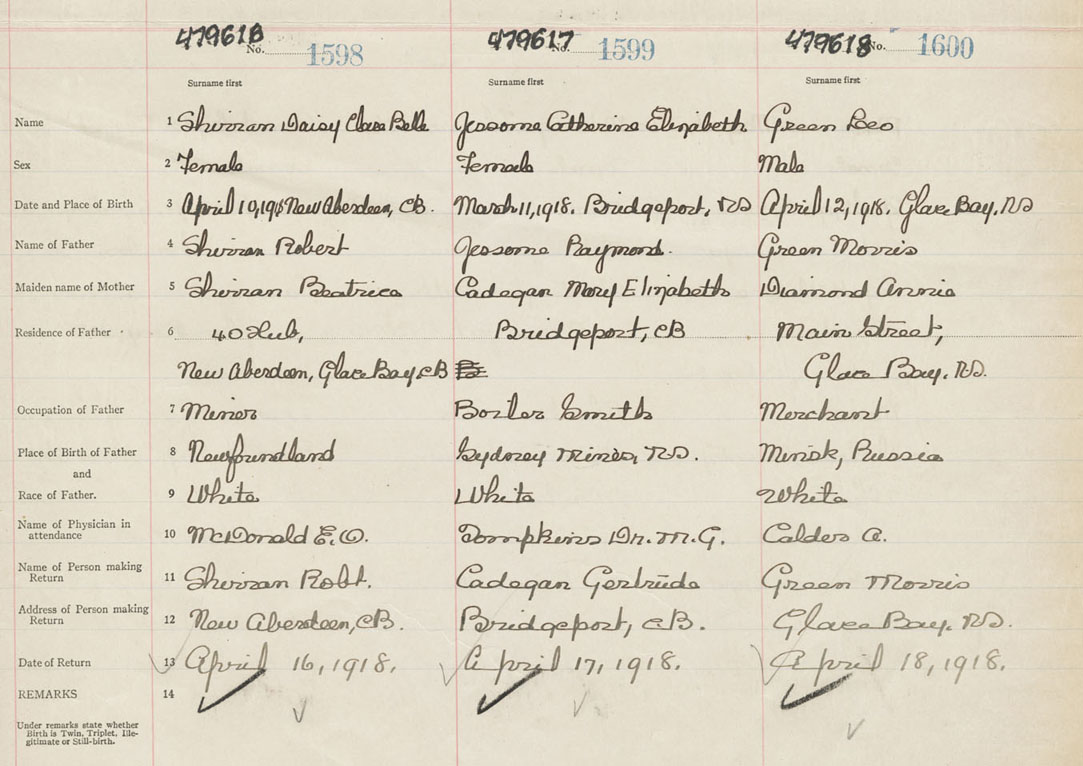 479616 No. 1598 479617 No. 1599 479618 No. 1600
Surname first Surname first Surname first
Name 1 Shirran Daisy Clara Belle Jessome Catherine Elizabeth Green Leo
Sex 2 Female Female Male
Date and Place of Birth 3 April 10, 1918 New Aberdeen, CB. March 11, 1918. Bridgeport, NS April 12, 1918. Glace Bay, NS
Name of Father 4 Shirran Robert Jessome Raymond. Green Morris
Maiden name of Mother 5 Shirran Beatrice Cadegan Mary Elizabeth Diamond Annie
Residence of Father 6 40 Hub, Bridgeport, CB Main Street,
New Aberdeen, Glace Bay, CB Glace Bay, NS.
Occupation of Father 7 Miner Boiler Smith Merchant
Place of Birth of Father 8 Newfoundland Sydney Mines, NS. Minsk, Russia
and
Race of Father. 9 White White White
Name of Physician in attendance 10 McDonald E.O. Tompkins Dr. M.G. Calder A.
Name of Person making Return 11 Shirran Robt. Cadegan Gertrude Green Morris
Address of Person making Return 12 New Aberdeen, CB. Bridgeport, CB. Glace Bay, NS.
Date of Return 13 April 16, 1918. April 17, 1918. April 18, 1918.
REMARKS 14
Under remarks state whether
Birth is Twin, Triplet, Ille-
gitimate or Still-birth.